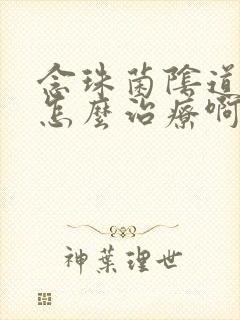 念珠菌陰道
怎麼治療啊
神葉理世